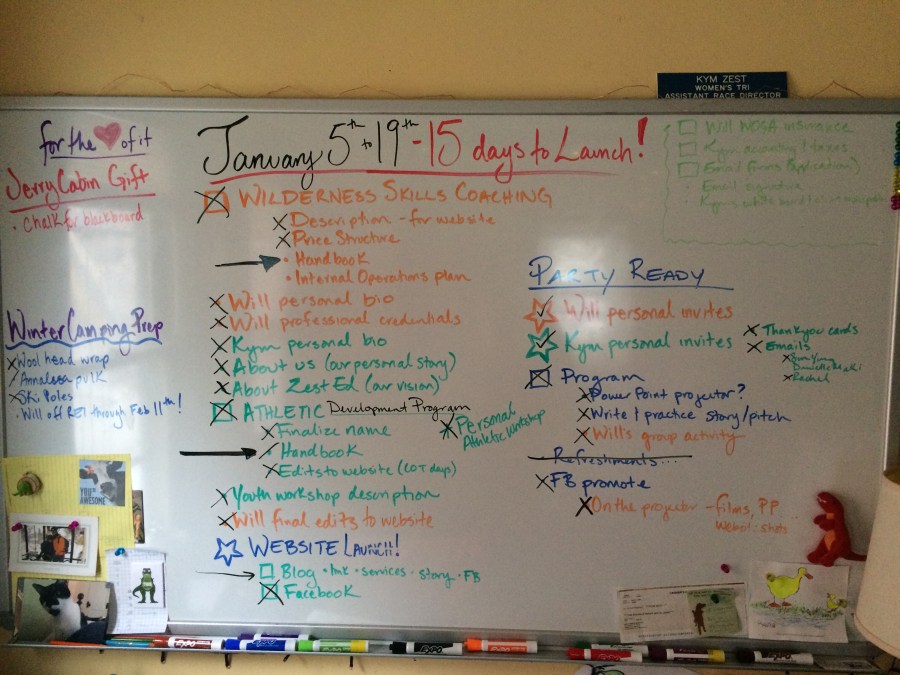 KYM ZEST
WOMEN'S TRI
ASSISTANT RACE DIRECTOR
for the of it
Jerry Cabin Gift
• Chalk for blackboard
Winter Camping Prep
Wool head wrap
Annalesa pulk
Ski Poles
• Will off REI through Feb 11th!
YOU'RE AWESOME
January 5th to 19th - 15 days to Launch!
WILDERNESS SKILLS COACHING
Description - for website
Price Structure
• Handbook
• Internal Operations plan
Will personal bio
Will professional credentials
Kym personal bio
About us (our personal story)
About Zest Ed (our vision)
ATHLETIC Development Program
Finalize name
Personal
Athletic Workshop
• Handbook
Edits to website (LOT days)
Youth workshop description
Will final edits to website
WEBSITE LAUNCH!
Blog • link • services • story • FB
Facebook
Will WOSA insurance
Kym accounting/taxes
Email forms (application)
• Email signature
PARTY READY
Will personal invites
Kym personal invites
Thankyou cards
Emails
Rachel
Program
Power Point projector?
Write & practice story/pitch
Will's group activity
• Refreshments...
FB promote
On the projector - films, PP...
EXPO